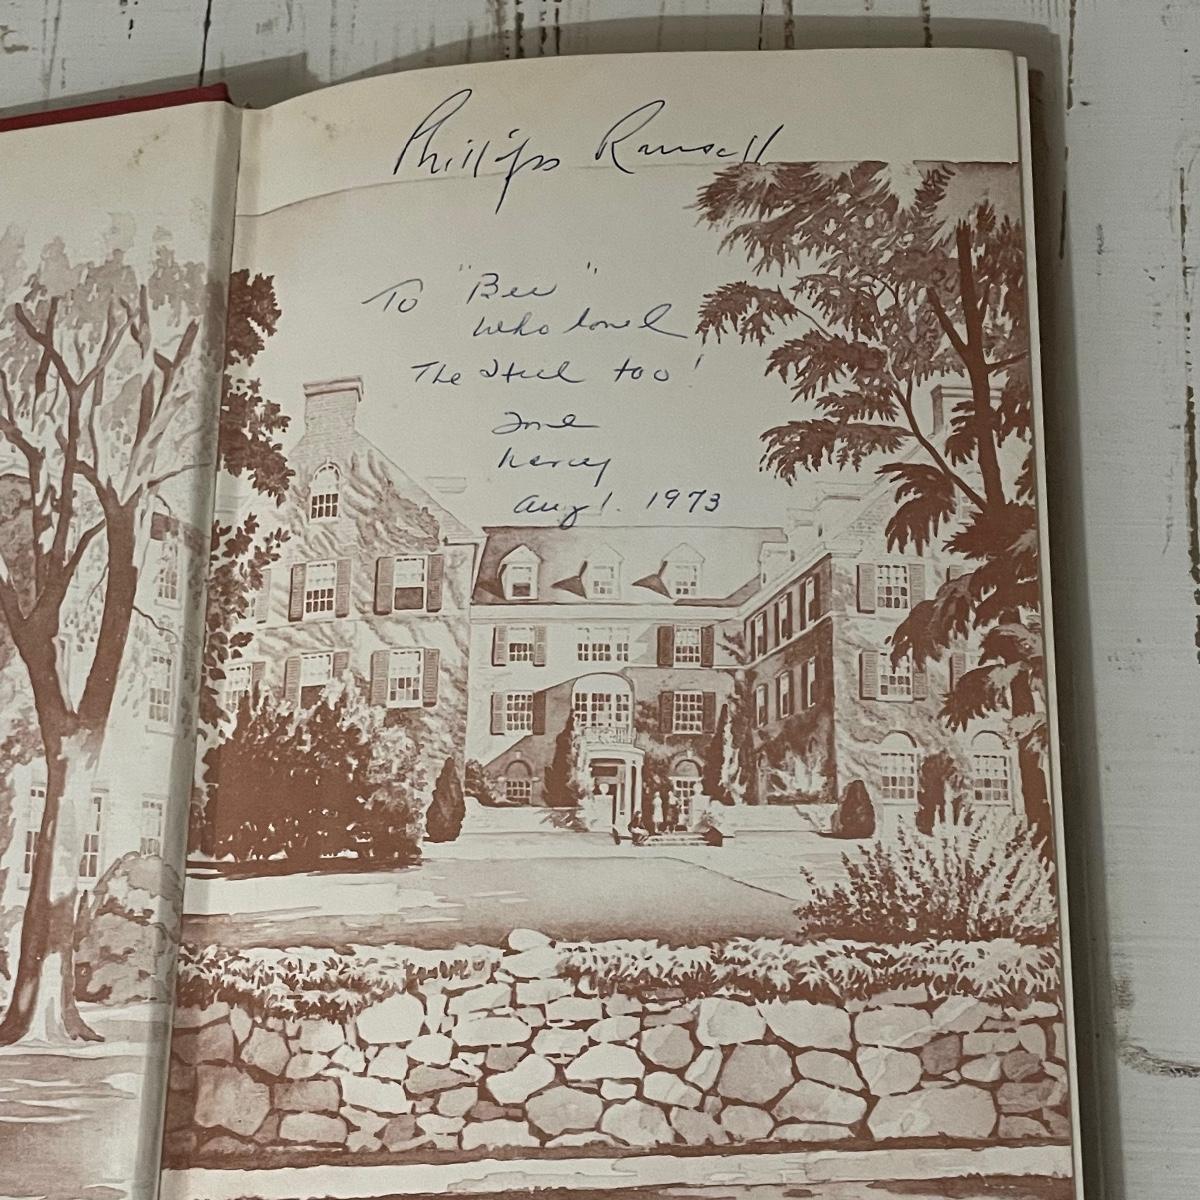 Phillips Russell
To "Bee"
who loved
The Hill too!
Love
Nancy
Aug 1. 1973